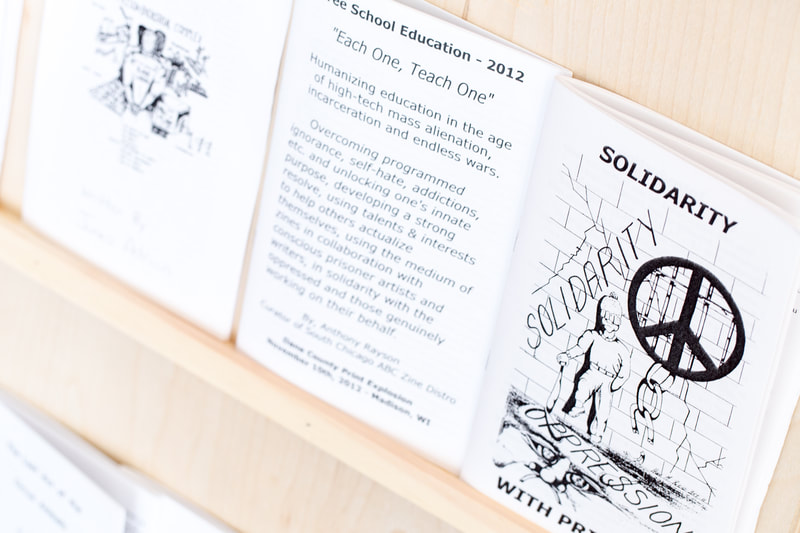 ee School Education - 2012
"Each One, Teach One"
Humanizing education in the age
of high-tech mass alienation,
incarceration and endless wars.
Overcoming programmed
ignorance, self-hate, addictions,
etc. and unlocking one's innate
purpose, developing a strong
resolve, using talents & interests
to help others actualize
themselves, using the medium of
zines in collaboration with
conscious prisoner artists and
writers, in solidarity with the
oppressed and those genuinely
working on their behalf.
By, Anthony Rayson
Curator of South Chicago ABC Zine Distro
Dane County Print Explosion
November 10th, 2012 - Madison, WI
SOLIDARITY
SOLIDARITY
OPPRESSION
WITH PRI